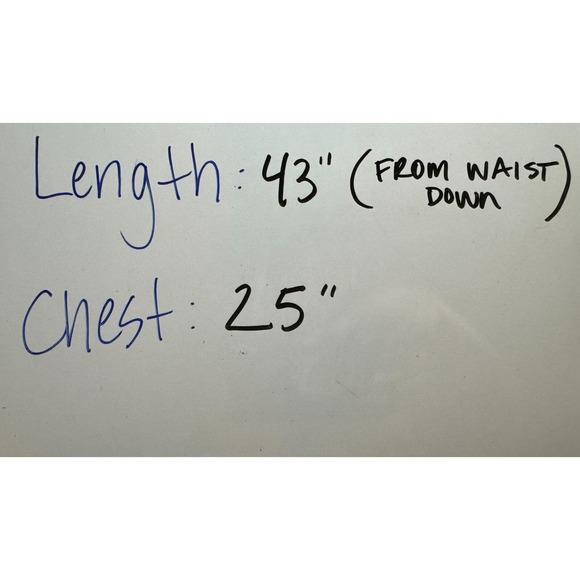 Length: 43" (FROM WAIST
DOWN)
Chest: 25"